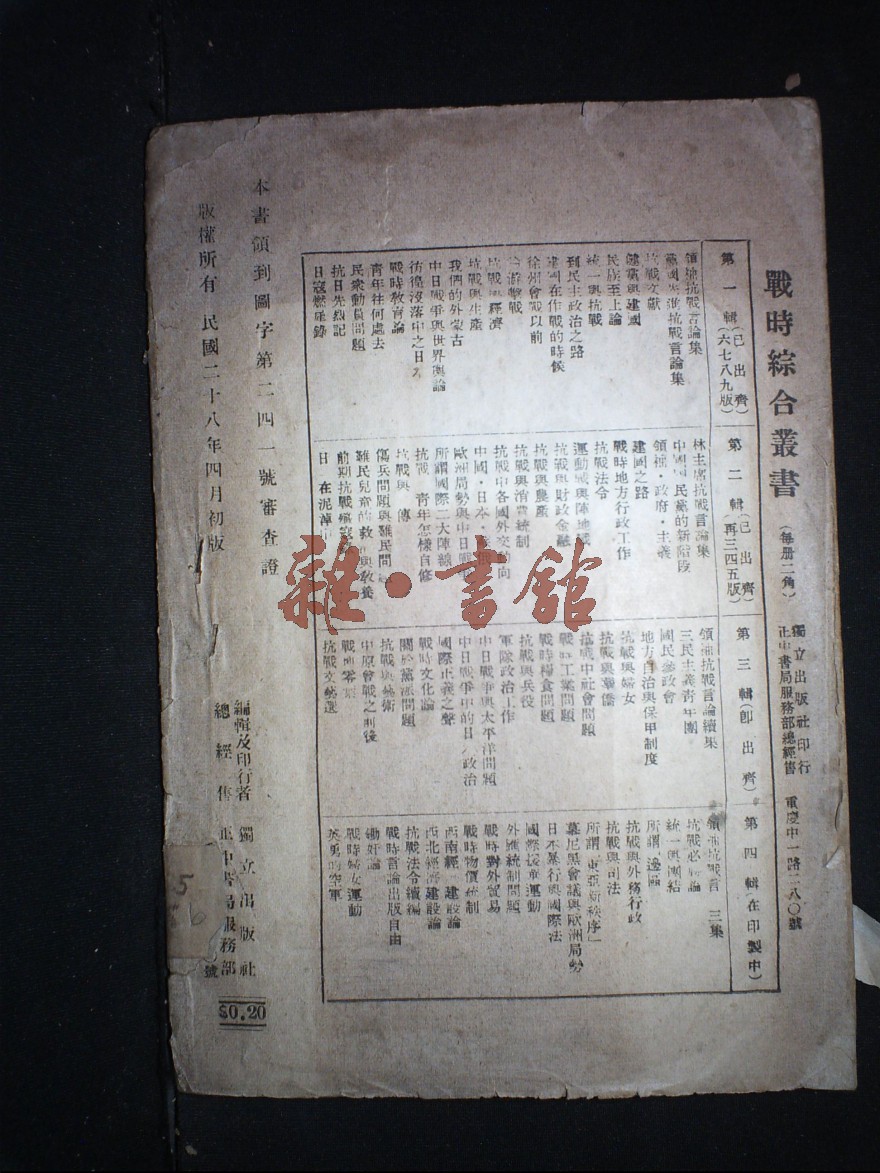 戰時綜合叢書
(每册二角)
獨立出版社印行
正中書局服務部總經售
重慶中一路二八〇號
第一輯(已出齊)
(六七八九版)
領袖抗戰言論集
黨國先進抗戰言論集
抗戰文獻
抗戰與建國
民族至上論
統一與抗戰
到民主政治之路
建國在作戰的時候
徐州會戰以前
論游擊戰
抗戰與經濟
抗戰與生產
我們的外蒙古
中日戰爭與世界輿論
彷徨沒落中之日
戰時教育論
青年往何處去
民衆動員問題
抗日先烈記
日寇燃犀錄
第二輯(已出齊)
(再三四五版)
林主席抗戰言論集
中國國民黨的新階段
領袖·政府·主義
建國之路
戰時地方行政工作
抗戰法令
運動戰與陣地戰
抗戰與財政金融
抗戰與農產
抗戰與消費統制
抗戰中各國外交動向
中國·日本·
歐洲局勢與中日戰爭
所謂國際二大陣線
抗戰 青年怎樣自修
抗戰與 傳
傷兵問題與難民問
難民兒童的救 與教養
前期抗戰
日 在泥淖中
第三輯(即出齊)
領袖抗戰言論續集
三民主義青年團
國民參政會
地方自治與保甲制度
抗戰與婦女
抗戰與華僑
抗戰中社會問題
戰時工業問題
戰時糧食問題
抗戰與兵役
軍隊政治工作
中日戰爭與太平洋問題
中日戰爭中的日 政治
國際正義之聲
戰時文化論
關於黨派問題
抗戰與藝術
中原會戰之前後
戰地零
抗戰文藝選
第四輯(在印製中)
領袖抗戰言 三集
抗戰必 論
統一與團結
所謂 邊區
抗戰與外務行政
抗戰與司法
所謂「東亞新秩序」
慕尼黑會議與歐洲局勢
日本暴行與國際法
國際援華運動
外匯統制問題
戰時對外貿易
戰時物價統制
西南經 建設論
西北經濟建設論
抗戰法令續編
戰時言論出版自由
鋤奸論
戰時婦女運動
英勇的空軍
本書領到圖字第二四一號審查證
版權所有 民國二十八年四月初版
編輯及印行者 獨立出版社
總經售 正中書局服務部
號
$0.20
5
6
雜·書館